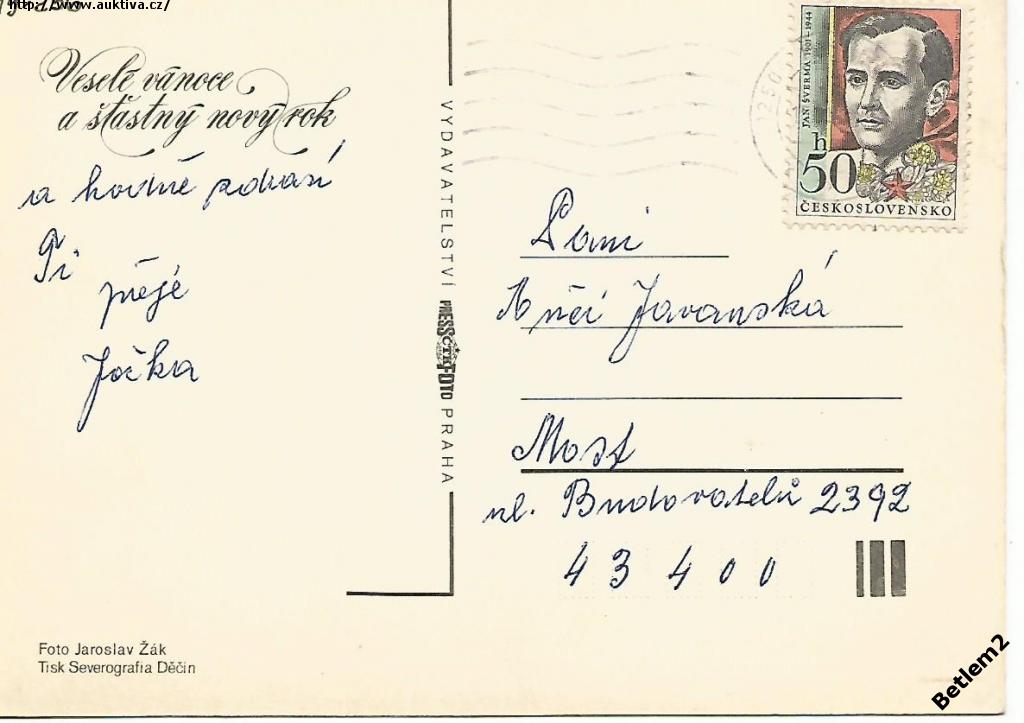 http://www.auktiva.cz/
Veselé vánoce
a šťastný nový rok
a hodně zdraví
Ti
přeje
Jočka
VYDAVATELSTVÍ PRESSFOTO PRAHA
ČTK
JAN ŠVERMA 1901–1944
50 h
ČESKOSLOVENSKO
Paní
Javanská
Most
ul. Budovatelů 2392
43400
Foto Jaroslav Žák
Tisk Severografia Děčín
Betlem2